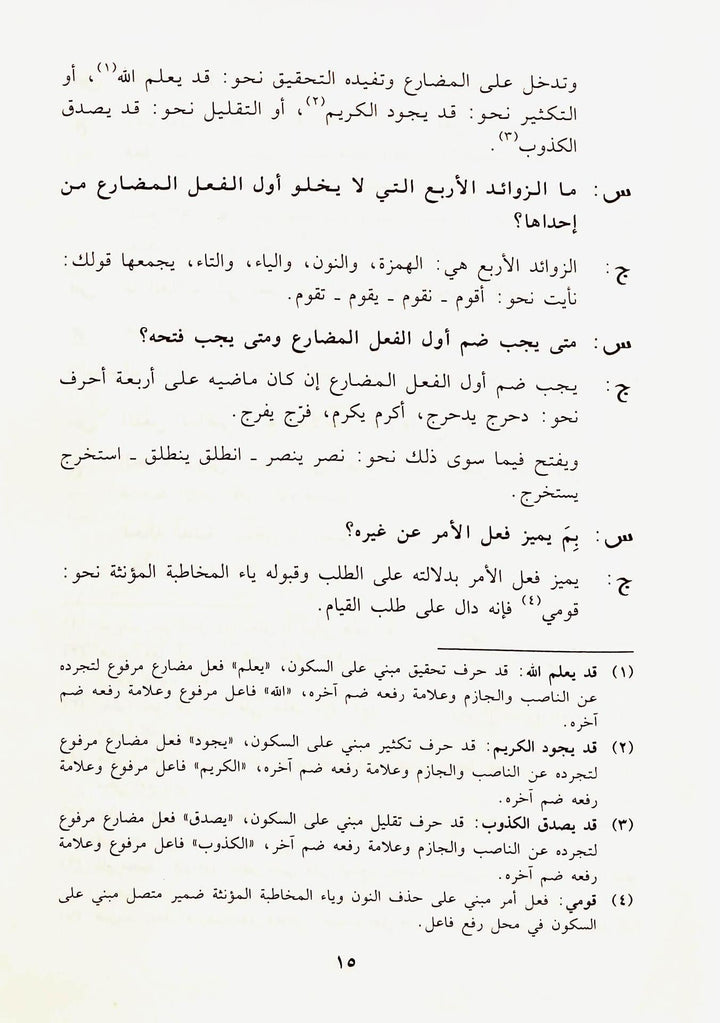 وتدخل على المضارع وتفيده التحقيق نحو: قد يعلم الله(١)، أو
التكثير نحو: قد يجود الكريم(٢)، أو التقليل نحو: قد يصدق
الكذوب(٣).
س: ما الزوائد الأربع التي لا يخلو أول الفعل المضارع من
إحداها؟
ج: الزوائد الأربع هي: الهمزة، والنون، والياء، والتاء، يجمعها قولك:
نأيت نحو: أقوم ـ نقوم ـ يقوم ـ تقوم.
س: متى يجب ضم أول الفعل المضارع ومتى يجب فتحه؟
ج: يجب ضم أول الفعل المضارع إن كان ماضيه على أربعة أحرف
نحو: دحرج يدحرج، أكرم يكرم، فرّج يفرج.
ويفتح فيما سوى ذلك نحو: نصر ينصر ـ انطلق ينطلق ـ استخرج
يستخرج.
س: بِمَ يميز فعل الأمر عن غيره؟
ج: يميز فعل الأمر بدلالته على الطلب وقبوله ياء المخاطبة المؤنثة نحو:
قومي(٤) فإنه دال على طلب القيام.
(١) قد يعلم الله: قد حرف تحقيق مبني على السكون، «يعلم» فعل مضارع مرفوع لتجرده
عن الناصب والجازم وعلامة رفعه ضم آخره، «الله» فاعل مرفوع وعلامة رفعه ضم
آخره.
(٢) قد يجود الكريم: قد حرف تكثير مبني على السكون، «يجود» فعل مضارع مرفوع
لتجرده عن الناصب والجازم وعلامة رفعه ضم آخره، «الكريم» فاعل مرفوع وعلامة
رفعه ضم آخره.
(٣) قد يصدق الكذوب: قد حرف تقليل مبني على السكون، «يصدق» فعل مضارع مرفوع
لتجرده عن الناصب والجازم وعلامة رفعه ضم آخر، «الكذوب» فاعل مرفوع وعلامة
رفعه ضم آخره.
(٤) قومي: فعل أمر مبني على حذف النون وياء المخاطبة المؤنثة ضمير متصل مبني على
السكون في محل رفع فاعل.
١٥